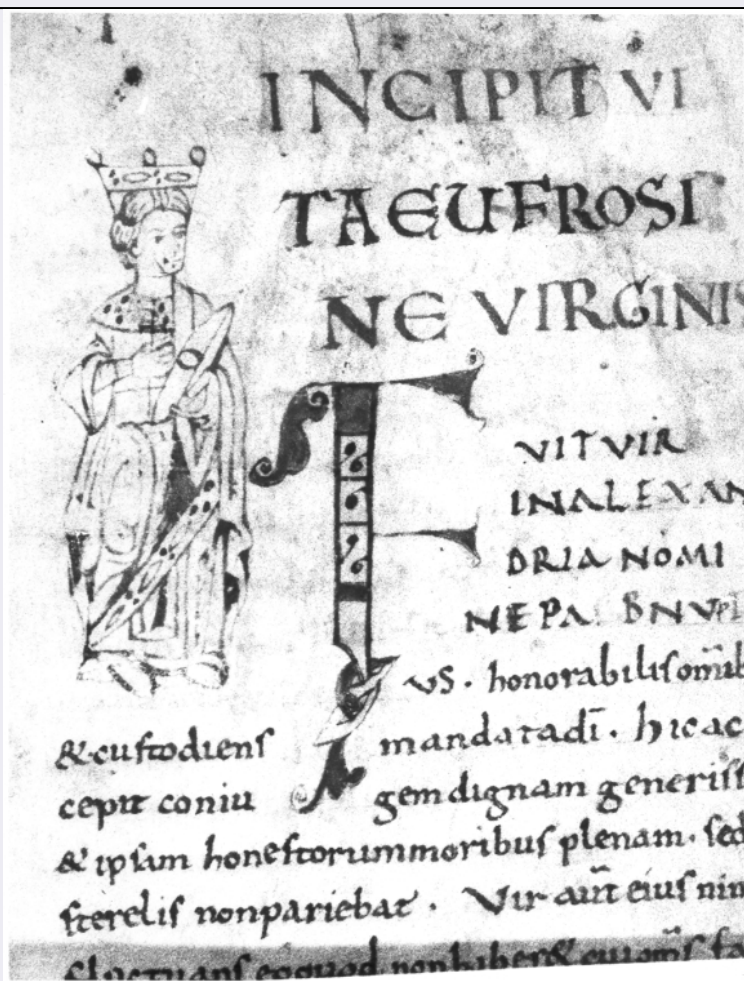 INCIPIT VI
TA EUFROSI
NE VIRGINIS
F
VIT VIR
IN ALEXAN
DRIA NOMI
NE PA BNVPI
VS. honorabilis om̅ib
& custodiens mandata di̅. hic ac
cepit coniu gem dignam generis s
& ipsam honestorum moribus plenam. sed
sterelis non pariebat. Vir aut̅ eius nim
fluctuans eo quod non haber& cui om̅s fa